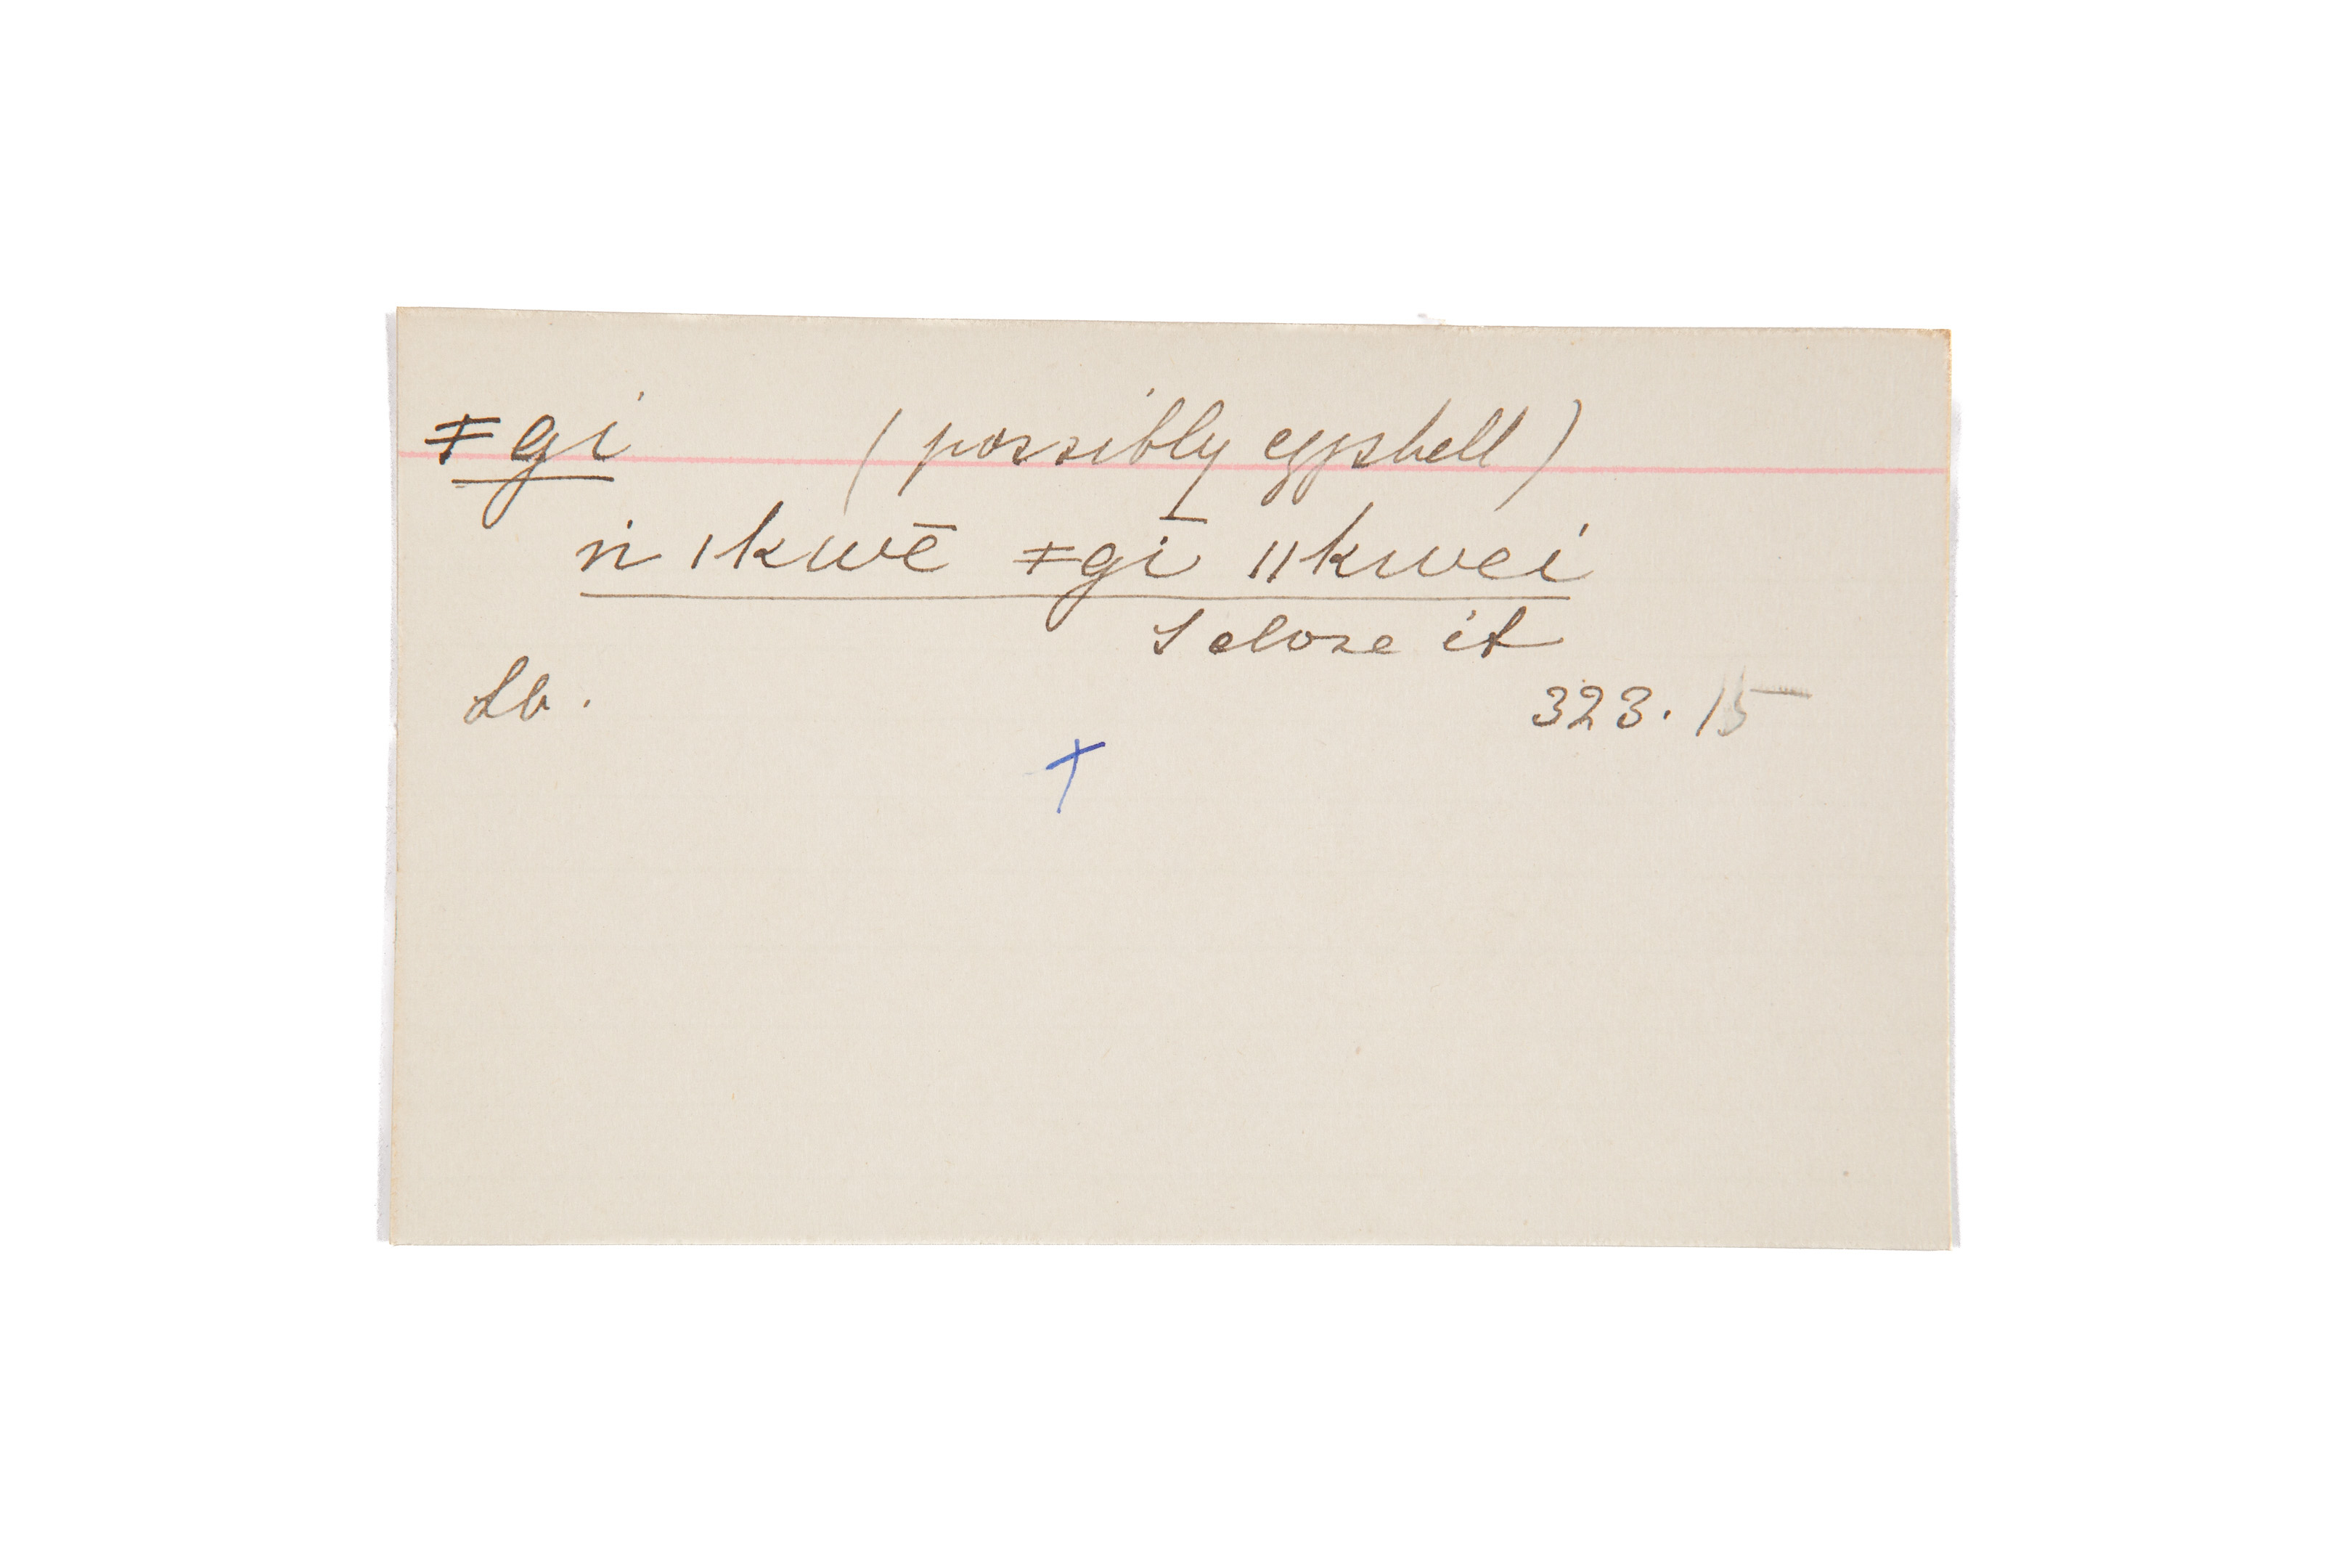 ǂgi (possibly eggshell)
ṅ ǀkwē ǂgī ǁkwei
I close it
Lb. 323.15